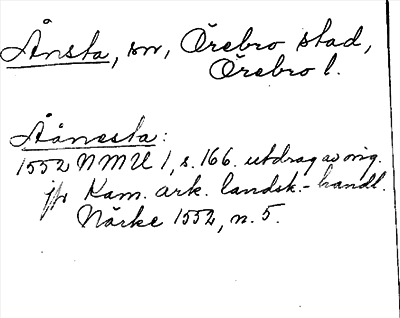 Ånsta, sn, Örebro stad,
Örebro l.
Åånesta:
1552 NMU 1, s. 166. utdrag av orig.
jfr Kam. ark. landsk.-handl.
Närke 1552, n. 5.